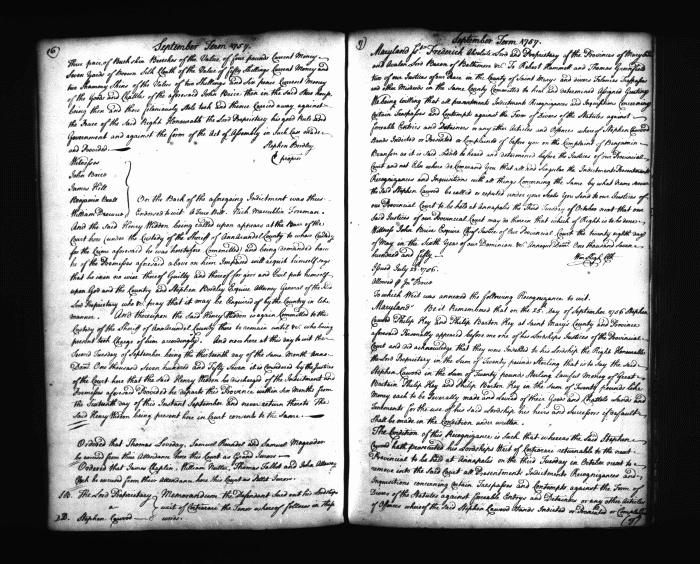 (6)
September Term 1757.
three pair of Buckskin Breeches of the Value of four pounds Current Money
Seven yards of Brown Silk Cloth of the Value of fifty Shillings Current Money and
two Shammy Skins of the Value of two Shillings and Six pence Current Money
of the Goods and Chattles of the aforesaid John Brice then in the said
then and there feloniously stole took and thence Carried away against
the Peace of the Said Right Honourable the Lord Proprietary his good Rule and
Government and against the form of the Act of Assembly in Such Case made
and Provided
Stephen Bordley
Witnesses
John Brice
James Hill
Benjamin Beall
William
On the Back of the aforegoing Indictment was thus
Endorsed to wit A True Bill. Foreman.
And the Said Henry Wedon being called upon appears at the Bar of the
Court here (under the Custody of the Sheriff of Annarundel County to whose Custody
for the Crime aforesaid he was heretofore committed) and being demanded how
he of the Premisses aforesaid above on him Imposed will acquit himself says
that he is in no wise thereof Guilty and thereof for good and Evil puts himself
upon God and the Country and Stephen Bordley Esquire Attorney General of the Said
Lord Proprietary who &c. pray that it may be Enquired of by the Country in like
manner. And thereupon the Said Henry Wedon is again Committed to the
Custody of the Sheriff of Annarundel County there to remain until &c. who being
present took Charge of him accordingly. And now here at this day to wit the
Second Tuesday of September being the thirteenth day of the Same Month Anno
Domini One thousand Seven hundred and Fifty Seven it is Considered by the Justices
of the Court here that the Said Henry Wedon be discharged of the Indictment and
Premisses aforesaid Provided he depart this Province within Six Months from
the Sixteenth day of this Instant September And never return thereto The
Said Henry Wedon being present here in Court consents to the Same
Ordered that Thomas Samuel and Samuel Magruder
be excused from their attendance here this Court as Grand Jurors
Ordered that James Chaplin, William Thomas Talbot and John
be excused from their attendance here this Court as Petit Jurors.
The Lord Proprietary Memorandum the Defendant Sued out his Lordships
a writ of Certiorari the Tenor whereof follows in these
Stephen Cawood words.
September Term 1757.
Maryland Frederick Absolute Lord and Proprietary of the Provinces of Maryland
and Avalon Lord Baron of Baltimore &c. To Robert Hammett and Thomas
two of our Justices of our Peace in the County of Saint Marys and divers Felonies Trespasses
and other Misdeeds in the Same County Committed to hear and determined Assigned Greeting
We being willing that all presentments Indictments Recognizances and Inquisitions Concerning
Certain Trespasses and Contempts against the Form of Divers of the Statutes against
forcable Entries and Detainers or any other Articles and Offences whereof Stephen Cawood
Stands Indicted or Presented or Complained of before you on the Complaint of Benjamin
as it is said Should be heard and determined before the Justices of our Provincial
Court and not Else where do Command You that all and Singular the Indictments Presentments
Recognizances and Inquisitions with all things concerning the Same by what name soever
the said Stephen Cawood be called or reputed under your Seals You Send to our Justices of
our Provincial Court to be held at Annapolis the third Tuesday of October next that our
Said Justices of our Provincial Court may do therein that which of Right is to be done
Witness John Brice Esquire Chief Justice of our Provincial Court the twenty eighth day
of May in the Sixth Year of our Dominion &c. Annoque Domini One thousand Seven
hundred and fifty
Issued July 1756.
Allowed Brice
To which Writ was annexed the following Recognizance to wit.
Maryland Be it remembered that on the 25th day of September 1756 Stephen
Cawood Philip Key and Philip Barton Key of Saint Mary's County and Province
aforesaid Personally appeared before me one of his Lordships Justices of the Provincial
Court and did acknowledge that they were Indebted to his Lordship the Right Honourable
the Lord Proprietary in the Sum of Twenty pounds Sterling that is to say the Said
Stephen Cawood in the Sum of Twenty pounds Sterling Lawful Money of Great
Britain Philip Key and Philip Barton Key in the Sum of Twenty pounds like
Money each to be Generally made and Levied of their Goods and Chattels Lands and
Tenements for the use of his Said Lordship his Heirs and Successors if default
Shall be made on the Condition under written.
The Condition of this Recognizance is Such that whereas the Said Stephen
Cawood hath prosecuted his Lordships Writ of Certiorari returnable to the next
Provincial to be held at Annapolis on the third Tuesday in October next to
remove into the Said Court all Presentments Indictments Recognizances and
Inquisitions concerning Certain Trespasses and Contempts against the Form of
Divers of the Statutes against forcable Entrys and Detainers or any other Articles
of Offences whereof the Said Stephen Cawood Stands Indicted or Presented or Complained